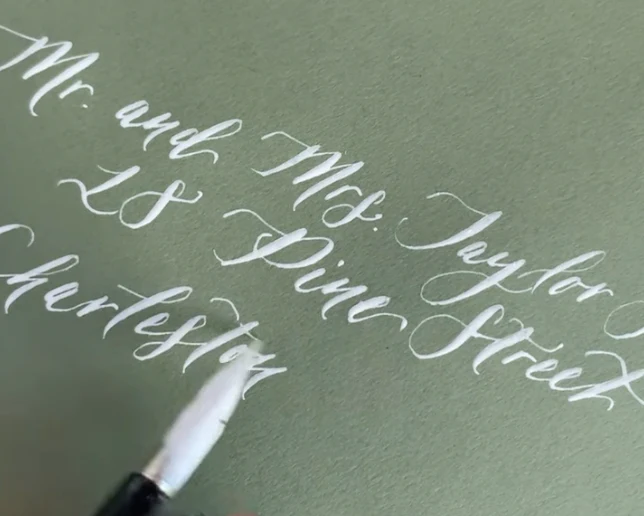 Mr. and Mrs. Taylor
28 Pine Street
Charleston